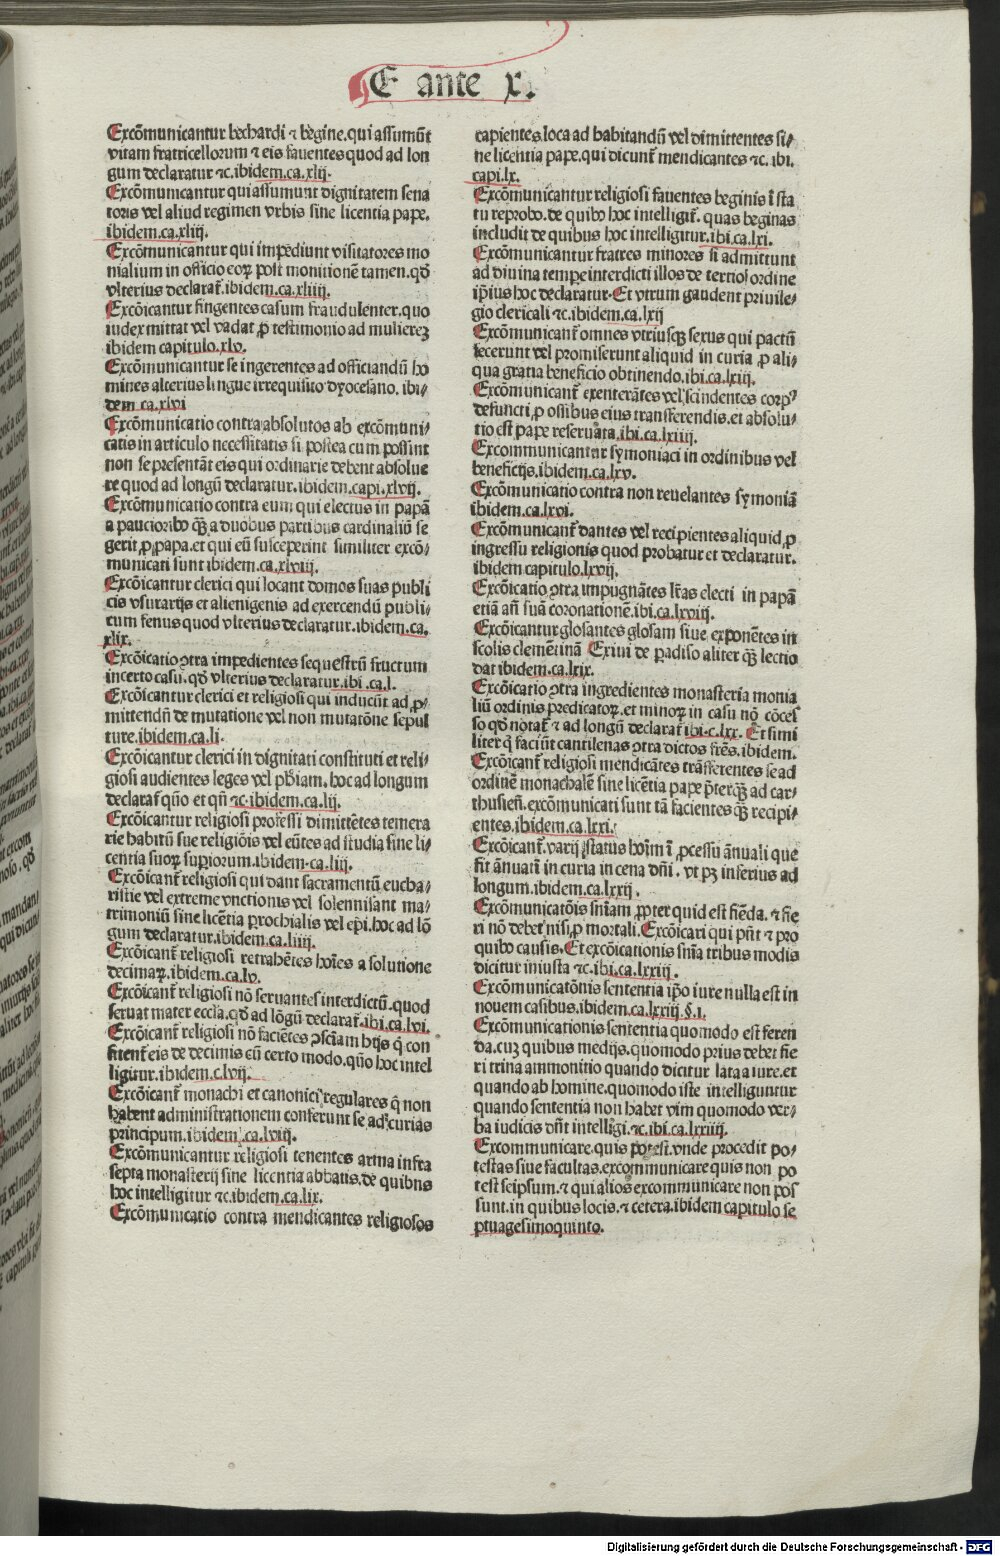 E ante x.
Excōmunicantur bechardi ⁊ begine.qui assumūt
vitam fratricellorum ⁊ eis fauentes quod ad lon
gum declaratur ⁊c.ibidem.ca.xlij.
Excōmunicantur qui assumunt dignitatem sena
toris vel aliud regimen vrbis sine licentia pape.
ibidem.ca.xliij.
Excōmunicantur qui impediunt visitatores mo
nialium in officio eoꝝ post monitionē tamen.qđ
vlterius declarat̄.ibidem.ca.xliiij.
Excōicantur fingentes casum fraudulenter.quo
iudex mittat vel vadat ꝓ testimonio ad mulierez
ibidem capitulo.xlv.
Excōmunicantur se ingerentes ad officiandū ho
mines alterius lingue irrequisito dyocesano. ibi⸗
dem ca.xlvi
Excōmunicatio contra absolutos ab excōmuni⸗
catis in articulo necessitatis si postea cum possint
non se presentāt eis qui ordinarie debent absolue
re quod ad longū declaratur.ibidem.capi.xlvij.
Excōmunicatio contra eum qui electus in papā
a paucioribꝰ qȝ̄ a duobus partibus cardinaliū se
gerit ꝓ papa.et qui eū susceperint similiter excō⸗
municati sunt ibidem.ca.xlviij.
Excōicantur clerici qui locant domos suas publi
cis vsurarijs et alienigenis ad exercendū publi⸗
cum fenus quod vlterius declaratur.ibidem.ca.
xlix.
Excōicatio ꝯtra impedientes sequestrū fructuum
incerto casu.qđ vlterius declaratur.ibi.ca.l.
Excōicantur clerici et religiosi qui inducūt ad ꝓ⸗
mittendū de mutatione vel non mutatōne sepul
ture.ibidem.ca.li.
Excōicantur clerici in dignitati constituti et reli⸗
giosi audientes leges vel phiam.hoc ad longum
declarat̄ qn̄o et qn̄ ⁊c.ibidem.ca.lij.
Excōicantur religiosi professi dimittētes temera
rie habitū sue religiōis vel eūtes ad studia sine li⸗
centia suoꝝ supiorum.ibidem.ca.liij.
Excōicant̄ religiosi qui dant sacramentū eucha⸗
ristie vel extreme vnctionis vel solennisant ma⸗
trimoniū sine licētia prochialis vel epi.hoc ad lō
gum declaratur.ibidem.ca.liiij.
Excōicant̄ religiosi retrahētes hoīes a solutione
decimaꝝ.ibidem.ca.lv.
Excōicant̄ religiosi nō seruantes interdictū.quod
seruat mater eccla.qđ ad lōgū declarat̄.ibi.ca.lvi.
Excōicant̄ religiosi nō faciētes ꝯsciam hijs q̄ con
fitent̄ eis de decimis cū certo modo.quo hoc intel
ligitur.ibidem.c.lvij.
Excōicant̄ monachi et canonici regulares q̄ non
habent administrationem conferunt se ad curias
principum.ibidem.ca.lviij.
Excōmunicantur religiosi tenentes arma infra
septa monasterij sine licentia abbatis.de quibus
hoc intelligitur ⁊c.ibidem.ca.lix.
Excōmunicatio contra mendicantes religiosos
capientes.loca ad habitandū vel dimittentes si⸗
ne licentia pape.qui dicunt̄ mendicantes ⁊c. ibi.
capi.lx.
Excōmunicantur religiosi fauentes beginis ī sta
tu reprobo.de quibꝰ hoc intelligit̄. quas beginas
includit de quibus hoc intelligitur.ibi.ca.lxi.
Excōmunicantur fratres minores si admittunt
ad diuina tempe interdicti illos de tertio ordine
ip̄ius hoc declaratur.Et vtrum gaudent priuile⸗
gio clericali ⁊c.ibidem.ca.lxij
Excōmunicant̄ omnes vtriusqȝ sexus qui pactū
fecerunt vel promiserunt aliquid in curia ꝓ ali⸗
qua gratia beneficio obtinendo.ibi.ca.lxiij.
Excōmunicant̄ exenterātes vel scindentes corpꝰ
defuncti ꝓ ossibus eius transferendis.et absolu⸗
tio est pape reseruata.ibi.ca.lxiiij.
Excommunicantur symoniaci in ordinibus vel
beneficijs.ibidem.ca.lxv.
Excōmunicatio contra non reuelantes symoniā
ibidem.ca.lxvi.
Excōmunicant̄ dantes vel recipientes aliquid ꝓ
ingressu religionis quod probatur et declaratur.
ibidem capitulo.lxvij.
Excōicatio ꝯtra impugnātes lr̄as electi in papā
etiā an̄ suā coronationē.ibi.ca.lxviij.
Excōicantur glosantes glosam siue exponētes in
scolis clemētinā Exiui de ꝑadiso aliter qȝ̄ lectio
dat ibidem.ca.lxix.
Excōicatio ꝯtra ingredientes monasteria monia
liū ordinis predicatoꝝ.et minoꝝ in casu nō cōces
so qđ notat̄ ⁊ ad longū declarat̄ ibi.c.lxx. Et simi
liter q̄ faciūt cantilenas ꝯtra dictos fr̄es.ibidem.
Excōicant̄ religiosi mendicātes trāsferentes se ad
ordinē monachalē sine licētia pape p̄terqȝ̄ ad car⸗
thusieñ.excōmunicati sunt tā facientes qȝ̄ recipi⸗
entes.ibidem.ca.lxxi.
Excōicant̄.varij status hoīm ī ꝓcessu ānuali que
fit ānuatī in curia in cena dn̄i. vt pȝ inferius ad
longum.ibidem.ca.lxxij.
Excōmunicatōis sn̄iam ꝓpter quid est fiēda.⁊ fie
ri nō debet nisi ꝓ mortali.Excōicari qui pn̄t ⁊ pro
quibꝰ causis.Et excōicationis sn̄ia tribus modis
dicitur iniusta ⁊c.ibi.ca.lxxiij.
Excōmunicatōnis sententia ip̄o iure nulla est in
nouem casibus.ibidem.ca.lxxiij.§.i.
Excōmunicationis sententia quomodo est feren
da.cuȝ quibus medijs.quomodo prius debet fie
ri trina ammonitio quando dicitur lata a iure.et
quando ab homine.quomodo iste intelliguntur
quando sententia non habet vim quomodo ver⸗
ba iudicis dn̄t intelligi.⁊c.ibi.ca.lxxiiij.
Excommunicare.quis potest.vnde procedit po⸗
testas siue facultas.excommunicare quis non po
test seipsum.⁊ qui alios excommunicare non pos
sunt.in quibus locis.⁊ cetera.ibidem capitulo se
ptuagesimoquinto.
Digitalisierung gefördert durch die Deutsche Forschungsgemeinschaft - DFG